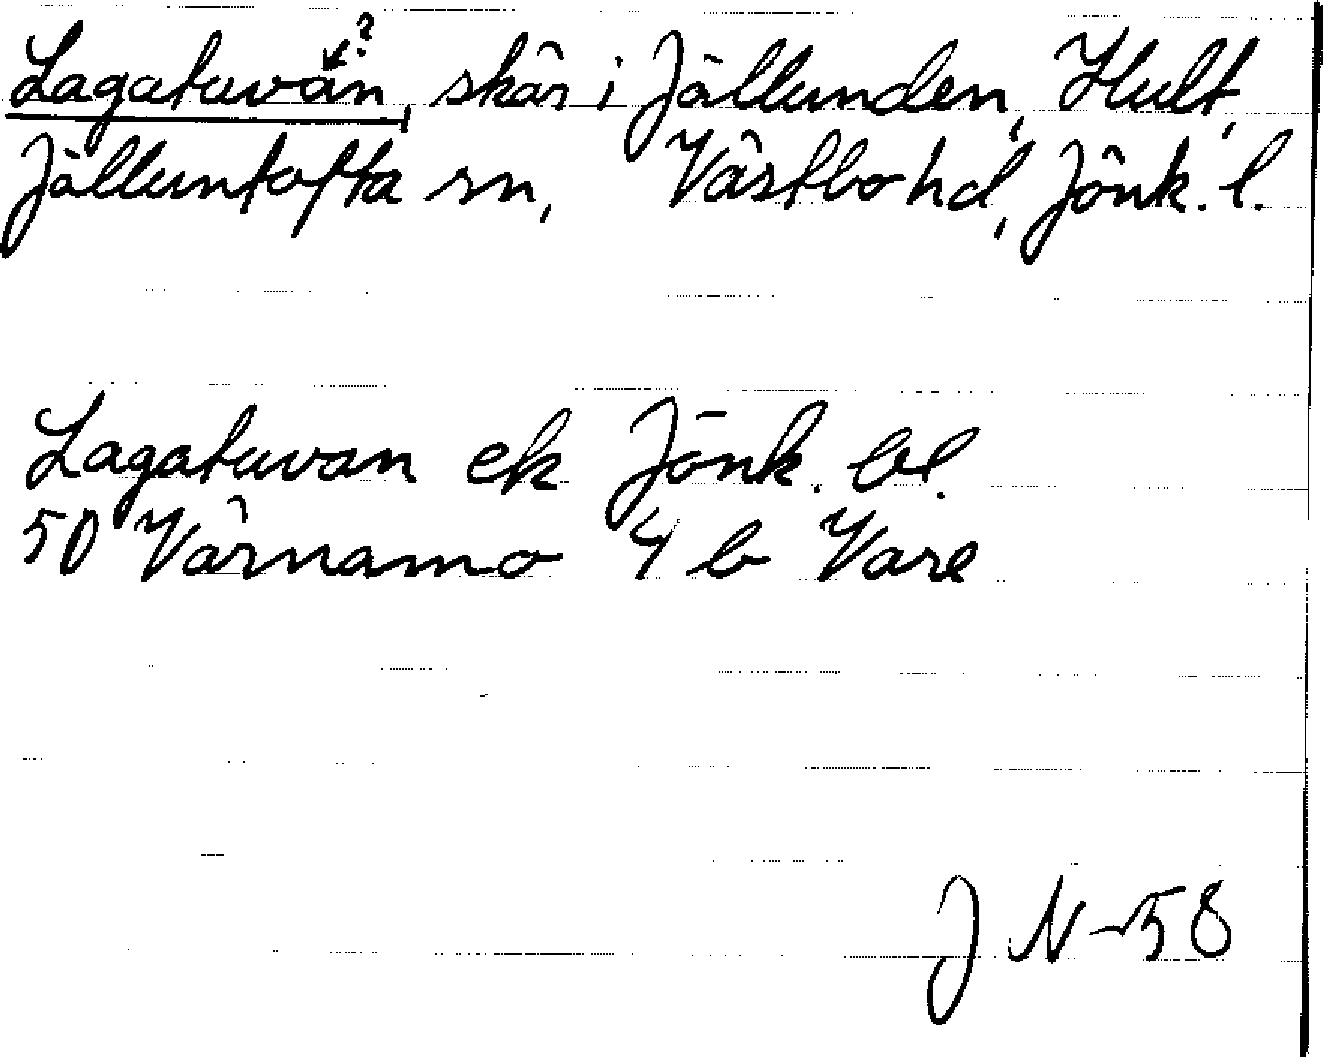 ?
Lagatuvan, skär i Jällunden, Hult,
Jälluntofta sn, Västbo hd, Jönk. l.
Lagatuvan ek Jönk. bl.
50 Värnamo 4 b Vare
J N-58